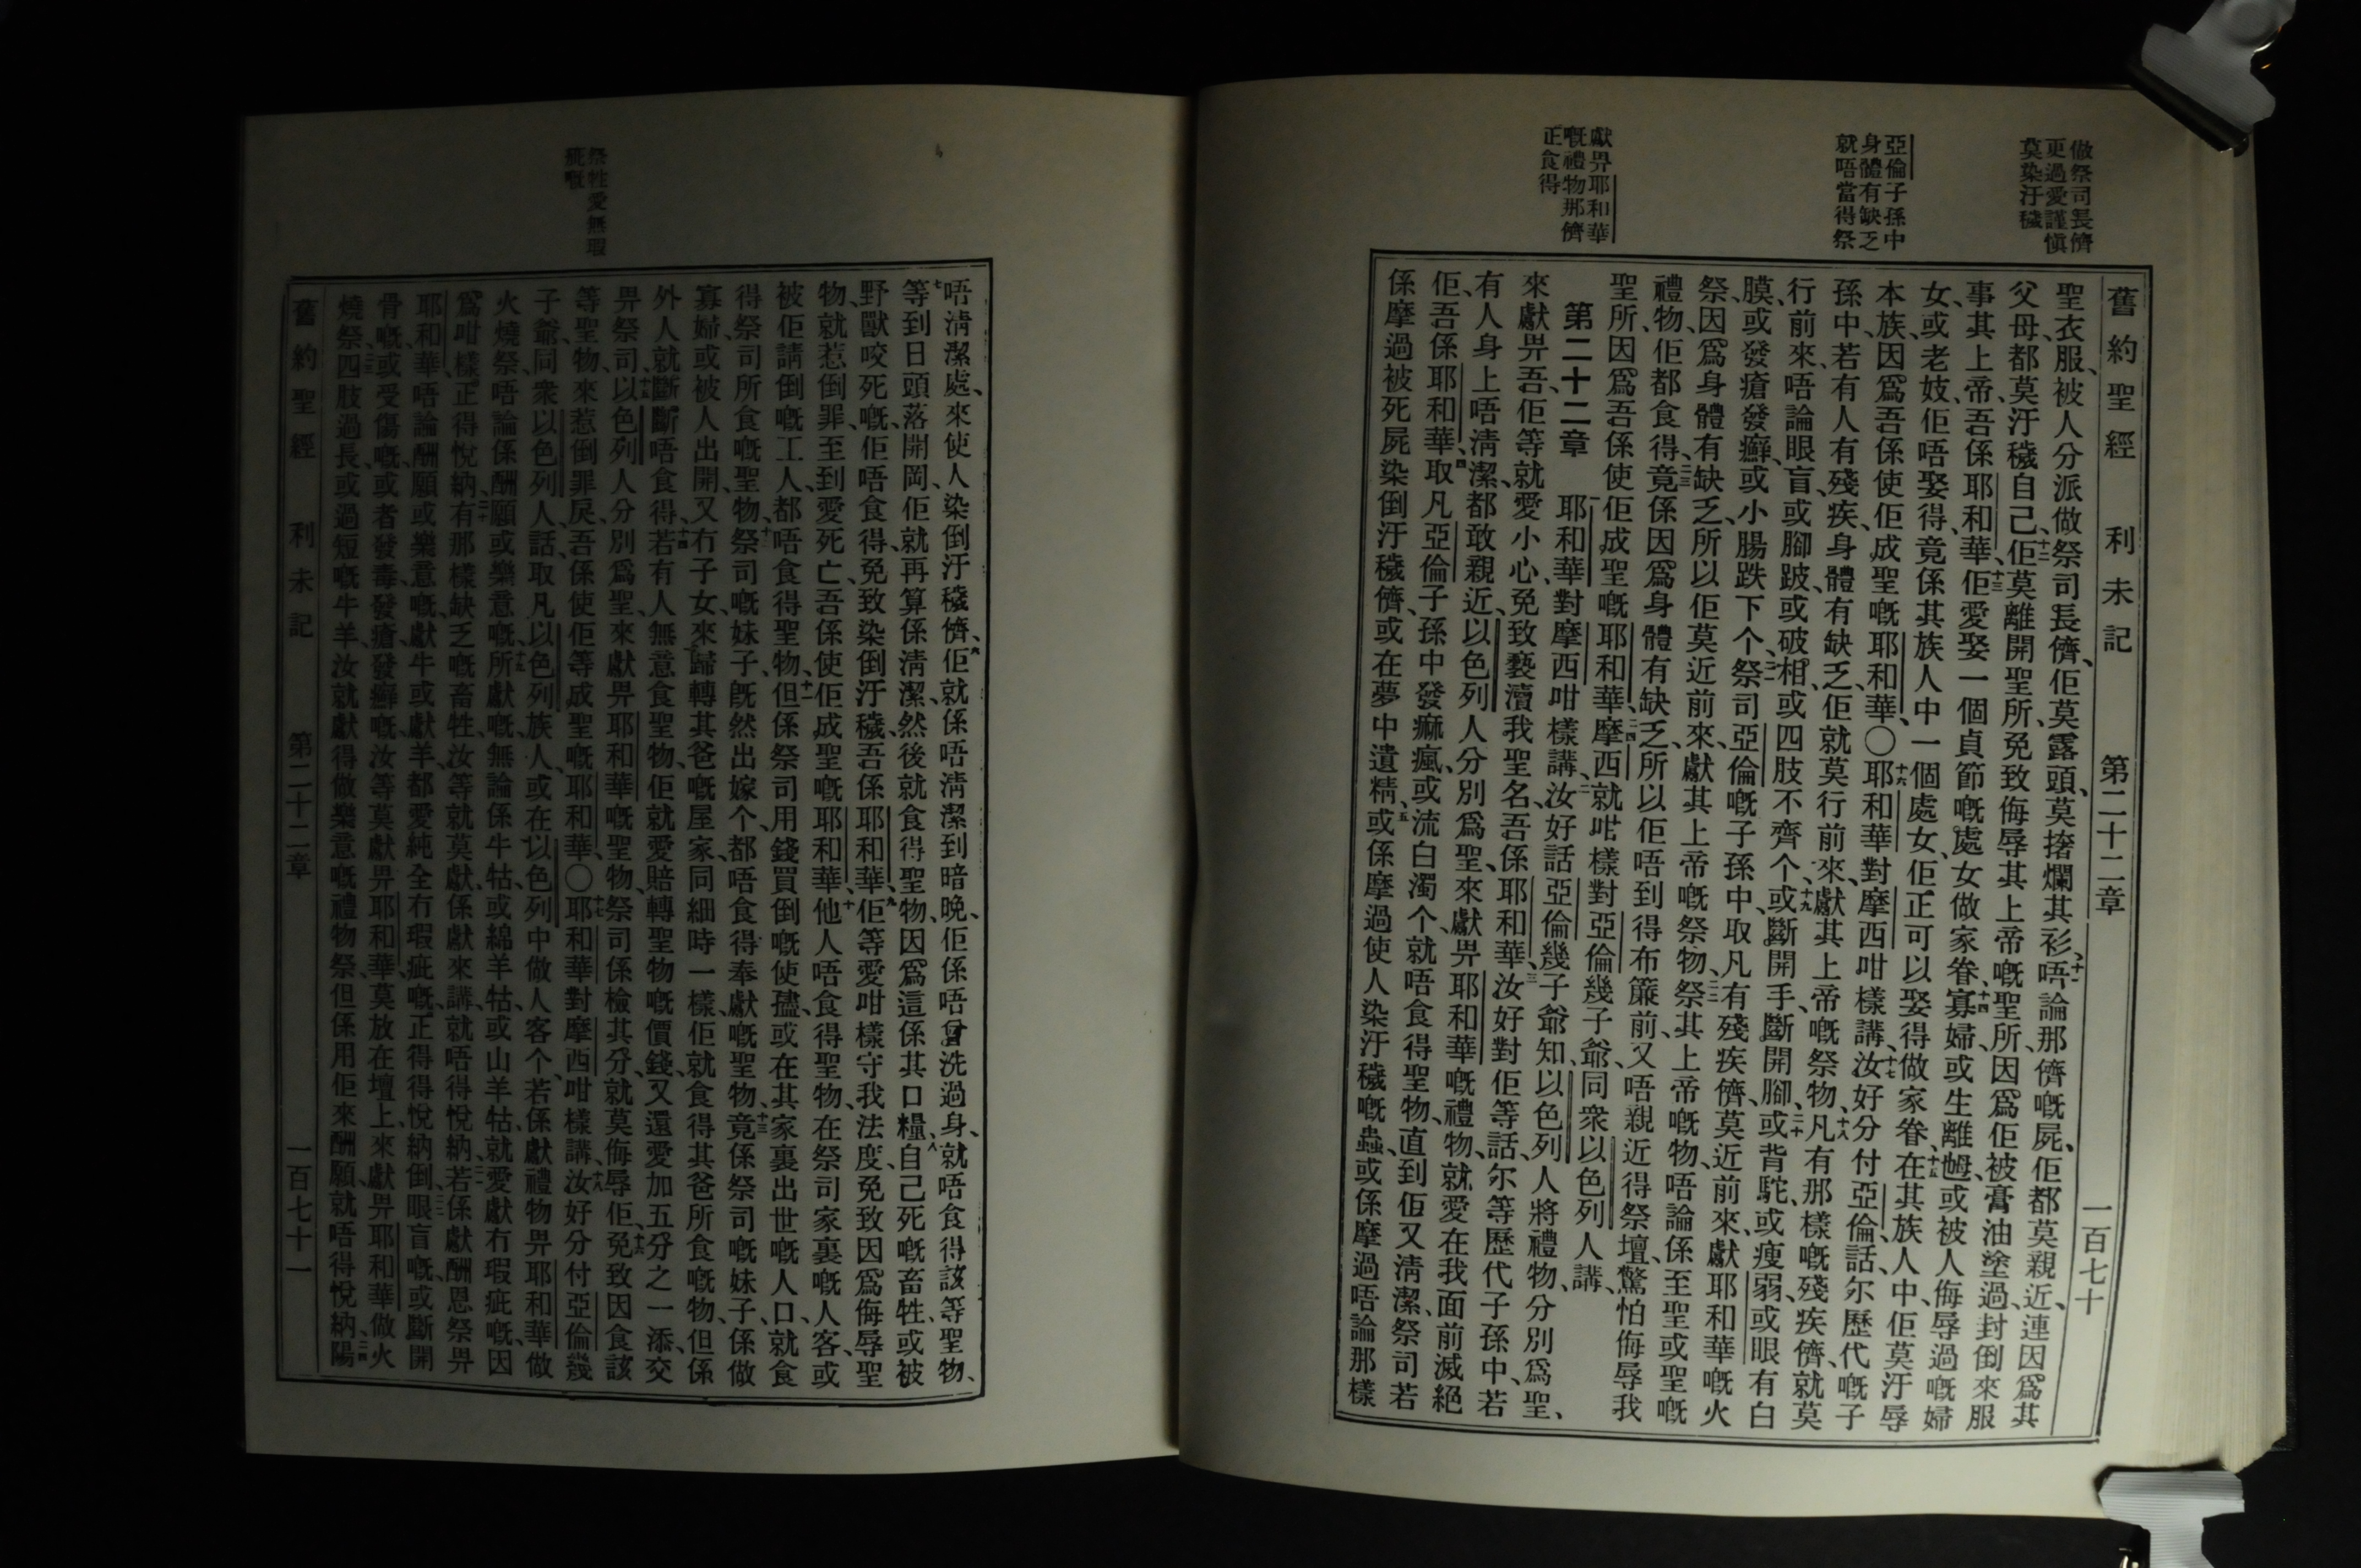 做祭司長儕
更過愛謹愼
莫染汙穢
亞倫子孫中
身體有缺乏
就唔當得祭
獻畀耶和華
嘅禮物那儕
正食得
舊約聖經 利未記 第二十二章 一百七十
聖衣服、被人分派做祭司長儕、佢莫露頭、莫撦爛其衫、十一唔論那儕嘅屍、佢都莫親近、連因爲其
父母、都莫汙穢自己、十二佢莫離開聖所、免致侮辱其上帝嘅聖所、因爲佢被膏油塗過、封倒來服
事其上帝、吾係耶和華、十三佢愛娶一個貞節嘅處女做家眷、十四寡婦、或生離乸、或被人侮辱過嘅婦
女、或老妓、佢唔娶得、竟係其族人中一個處女、佢正可以娶得做家眷、十五在其族人中、佢莫汙辱
本族、因爲吾係使佢成聖嘅耶和華、〇十六耶和華對摩西咁樣講、十七汝好分付亞倫、話、尔歷代嘅子
孫中、若有人有殘疾、身體有缺乏、佢就莫行前來、獻其上帝嘅祭物、十八凡有那樣嘅殘疾儕、就莫
行前來、唔論眼盲、或腳跛、或破相、或四肢不齊个、十九或斷開手、斷開腳、二十或背駝、或瘦弱、或眼有白
膜、或發瘡發癬、或小腸跌下个、二一祭司亞倫嘅子孫中、取凡有殘疾儕、莫近前來、獻耶和華嘅火
祭、因爲身體有缺乏、所以佢莫近前來、獻其上帝嘅祭物、二二祭其上帝嘅物、唔論係至聖或聖嘅
禮物、佢都食得、二三竟係因爲身體有缺乏、所以佢唔到得布簾前、又唔親近得祭壇、驚怕侮辱我
聖所、因爲吾係使佢成聖嘅耶和華、二四摩西就咁樣對亞倫幾子爺、同衆以色列人講、
第二十二章 一耶和華對摩西咁樣講、二汝好話亞倫幾子爺知、以色列人將禮物、分別爲聖、
來獻畀吾、佢等就愛小心、免致褻瀆我聖名、吾係耶和華、三汝好對佢等話、尔等歷代子孫中、若
有人身上唔淸潔、都敢親近、以色列人分別爲聖、來獻畀耶和華嘅禮物、就愛在我面前滅絕
佢、吾係耶和華、四取凡亞倫子孫中、發痲瘋、或流白濁个、就唔食得聖物、直到佢又淸潔、祭司若
係摩過被死屍染倒汙穢儕、或在夢中遺精、五或係摩過使人染汙穢嘅蟲、或係摩過唔論那樣
祭牲愛無瑕
疵嘅
唔淸潔處、來使人染倒汙穢儕、六佢就係唔淸潔到暗晚、佢係唔曾洗過身、就唔食得該等聖物、
七等到日頭落開岡、佢就再算係淸潔、然後就食得聖物、因爲這係其口糧、八自己死嘅畜牲、或被
野獸咬死嘅、佢唔食得、免致染倒汙穢、吾係耶和華、九佢等愛咁樣守我法度、免致因爲侮辱聖
物、就惹倒罪、至到愛死亡、吾係使佢成聖嘅耶和華、十他人唔食得聖物、在祭司家裏嘅人客、或
被佢請倒嘅工人、都唔食得聖物、十一但係祭司用錢買倒嘅使孻、或在其家裏出世嘅人口、就食
得祭司所食嘅聖物、十二祭司嘅妹子、旣然出嫁个、都唔食得奉獻嘅聖物、十三竟係祭司嘅妹子、係做
寡婦、或被人出開、又冇子女、來歸轉其爸嘅屋家、同細時一樣、佢就食得其爸所食嘅物、但係
外人就斷斷唔食得、十四若有人無意食聖物、佢就愛賠轉聖物嘅價錢、又還愛加五分之一添、交
畀祭司、十五以色列人分別爲聖、來獻畀耶和華嘅聖物、祭司係檢其分、就莫侮辱佢、十六免致因食該
等聖物、來惹倒罪戾、吾係使佢等成聖嘅耶和華、〇十七耶和華對摩西咁樣講、十八汝好分付亞倫幾
子爺、同衆以色列人、話、取凡以色列族人、或在以色列中做人客个、若係獻禮物畀耶和華做
火燒祭、唔論係酬願、或樂意嘅、十九所獻嘅、無論係牛牯、或綿羊牯、或山羊牯、就愛獻冇瑕疵嘅、因
爲咁樣、正得悅納、二十有那樣缺乏嘅畜牲、汝等就莫獻、係獻來講、就唔得悅納、二一若係獻酬恩祭畀
耶和華、唔論酬願、或樂意嘅、獻牛或獻羊、都愛純全冇瑕疵嘅、正得得悅納倒、二二眼盲嘅、或斷開
骨嘅、或受傷嘅、或者發毒、發瘡、發癬嘅、汝等莫獻畀耶和華、莫放在壇上、來獻畀耶和華做火
燒祭、二三四肢過長、或過短嘅牛羊、汝就獻得做樂意嘅禮物祭、但係用佢來酬願、就唔得悅納、二四陽
舊約聖經 利未記 第二十二章 一百七十一